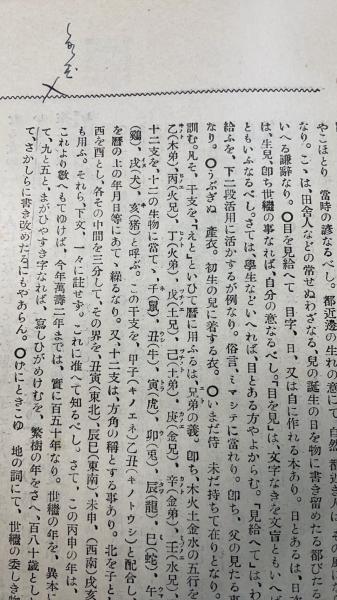 やこほとり　當時の諺なるべし。都近邊の生れの意にて、自然
なり。こゝは、田舍人などの常せぬわざなる、兒の誕生の日を物に書き留めたる都びたる
いへる謙辭なり。〇目を見給へて　目字、日、又は自に作れる本あり。日とあるは、日次
は、生兒、卽ち世繼の事なれば、自分の意なるべし。「目を見し」は、文字なきを文盲ともいへば
ともいふなるべし。さては、學生などいへれば、目とある方やよからむ。「見給へて」は、わ
給ふを、下二段活用に活かするが例なり。俗言、ミマシテに當れり。卽ち、父の見たる事
なり。〇うぶぎぬ　產衣。初生の兒に着する衣。〇いまだ侍　未だ持ちて在りとなり。
訓む。凡そ、干支を、「えと」といひて曆に用ふるは、兄弟の義。卽ち、木火土金水の五行を
乙(木弟)、丙(火兄)、丁(火弟)、戊(土兄)、己(土弟)、庚(金兄)、辛(金弟)、壬(水兄)、
十二支を、十二の生物に當て、子(鼠)、丑(牛)、寅(虎)、卯(兎)、辰(龍)、巳(蛇)、午
(鷄)、戌(犬)、亥(猪)と呼ぶ。この干支を、甲子(キノエネ)乙丑(キノトウシ)と配合し、
を曆の上の年月日等にあて、繰るなり。又、十二支は、方角の稱とする事あり。北を子と
酉を酉とし、各その中間を三分して、その界を、丑寅(東北)、辰巳(東南)、未申、(西南)戌亥
も用ふ。それら、下文、一々に註せず。これに准へて知るべし。さて、この丙申の年は、
これより數へもてゆけば、今年萬壽二年までは、實に百五十年なり。世繼の年を、異本に
て、九と五と、まがひやすき字なれば、寫しひがめけむを、繁樹の年をさへ、百八十歲とし
て、さかしらに書き改めたるにもやあらん。〇げにときこゆ　地の詞にて、世繼の委しき物